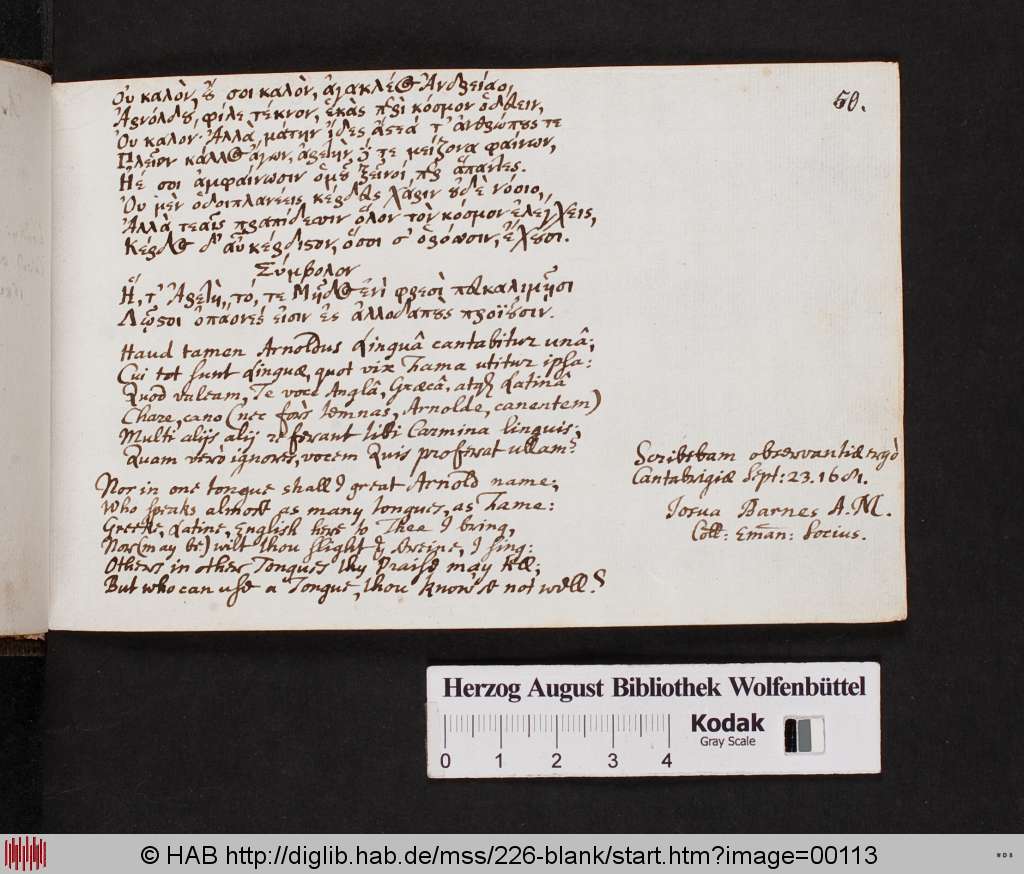 50.
Οὐ καλὸν, ȣ̓ σοι καλὸν, ἀγακλέος Ἀνδρείαο,
Ἀρνόλδȣ, φίλε τέκνον, ἑκὰς περὶ κόσμον ὁδεύειν,
Οὐ καλον· Ἀλλὰ μάτην ἴδες ἄστεά τ' ἀνθρώπȣς τε
Πλεῖον κάλλος ἄγων, ἀρετὴν,
μείζονα φαίνων,
Ἠέ σοι ἀμφαίνωσιν ὁμȣ͂ ξεῖνοί
ἅπαντες.
Οὐ μὲν ὁδοιπλανέεις, κέρδȣς χάριν ȣ̓δὲ νόσοιο,
Ἀλλὰ τεαῖς πραπίδεσσιν ὅλον τὸν κόσμον ἐλέγχεις,
Κέρδος δ' αὖ κέρδιστον, ὅσοι σ' ὁρόωσιν, ἔχȣσι.
Σύμβολον
Ἥ, τ' Ἀρετὴ, τό, τε Μῆδος ἐνὶ φρεσὶ
Λῷστοι ὀπάονές εἰσιν ἐς ἀλλοδαπȣ̀ς προϊȣ͂σιν.
Haud tamen Arnoldus Linguâ cantabitur unâ;
Cui tot sunt Linguæ, quot vix Fama utitur ipsa:
Quod valeam, Te voce Anglâ, Græcâ, atq; Latinâ
Chare, cano (nec fors temnas, Arnolde, canentem)
Multi alijs alij referant tibi Carmina linguis;
Quam verò ignores, vocem Quis proferat ullam?
Nor in one tongue shall I great Arnold name;
Who speaks almost as many Tongues, as Fame:
Greeke, Latine, English here to Thee I bring,
Nor (may be) wilt thou slight ye Streine, I sing:
Others in other Tongues thy Praise may tell;
But who can use a Tongue, thou know'st not well?
Scribebam observantiæ ergò
Cantabrigiæ Sept: 23. 1681.
Josua Barnes A. M.
Coll: Eman: Socius.
Herzog August Bibliothek Wolfenbüttel
Kodak
Gray Scale
0 1 2 3 4
© HAB http://diglib.hab.de/mss/226-blank/start.htm?image=00113
WDB